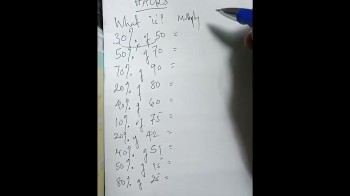 HACKS
What is? Multiply
30% of 50 =
50% of 70 =
70% of 90 =
20% of 80 =
40% of 60 =
10% of 75 =
20% of 42 =
40% of 51 =
50% of 15 =
80% of 25 =